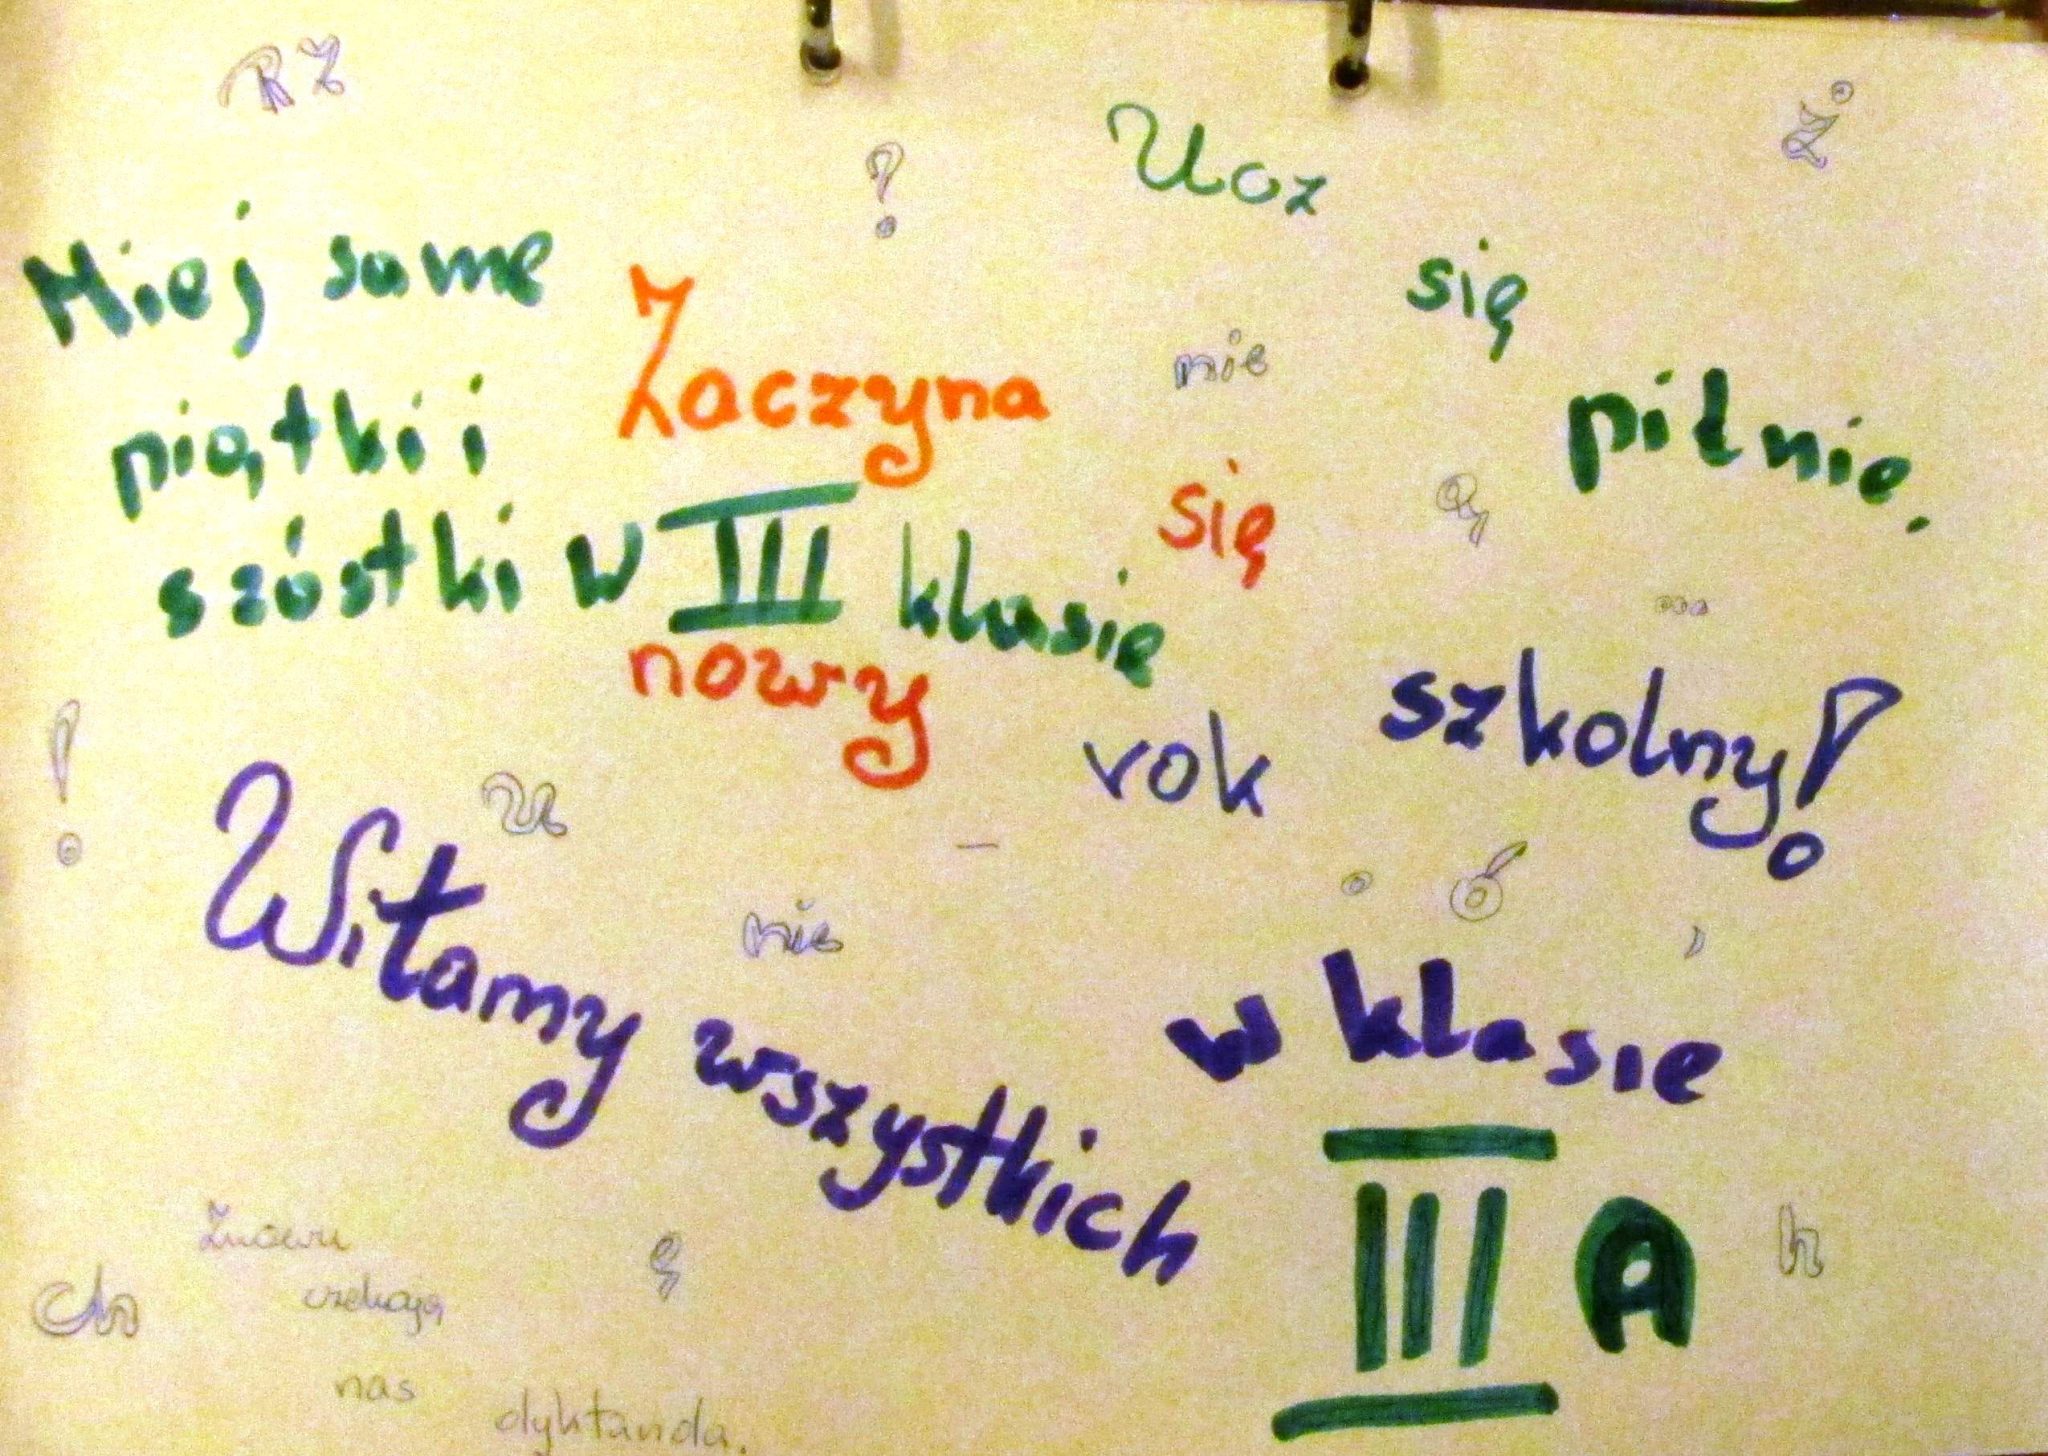 RZ
Ż
?
Ucz
się
pilnie.
Miej same
piątki i
szóstki w III klasie
Zaczyna
się
nowy
rok
szkolny!
nie
Ą
...
!
U
-
nie
.
ó
,
Witamy wszystkich
w klasie
III A
h
Ch
ę
Znowu
czekają
nas
dyktanda.